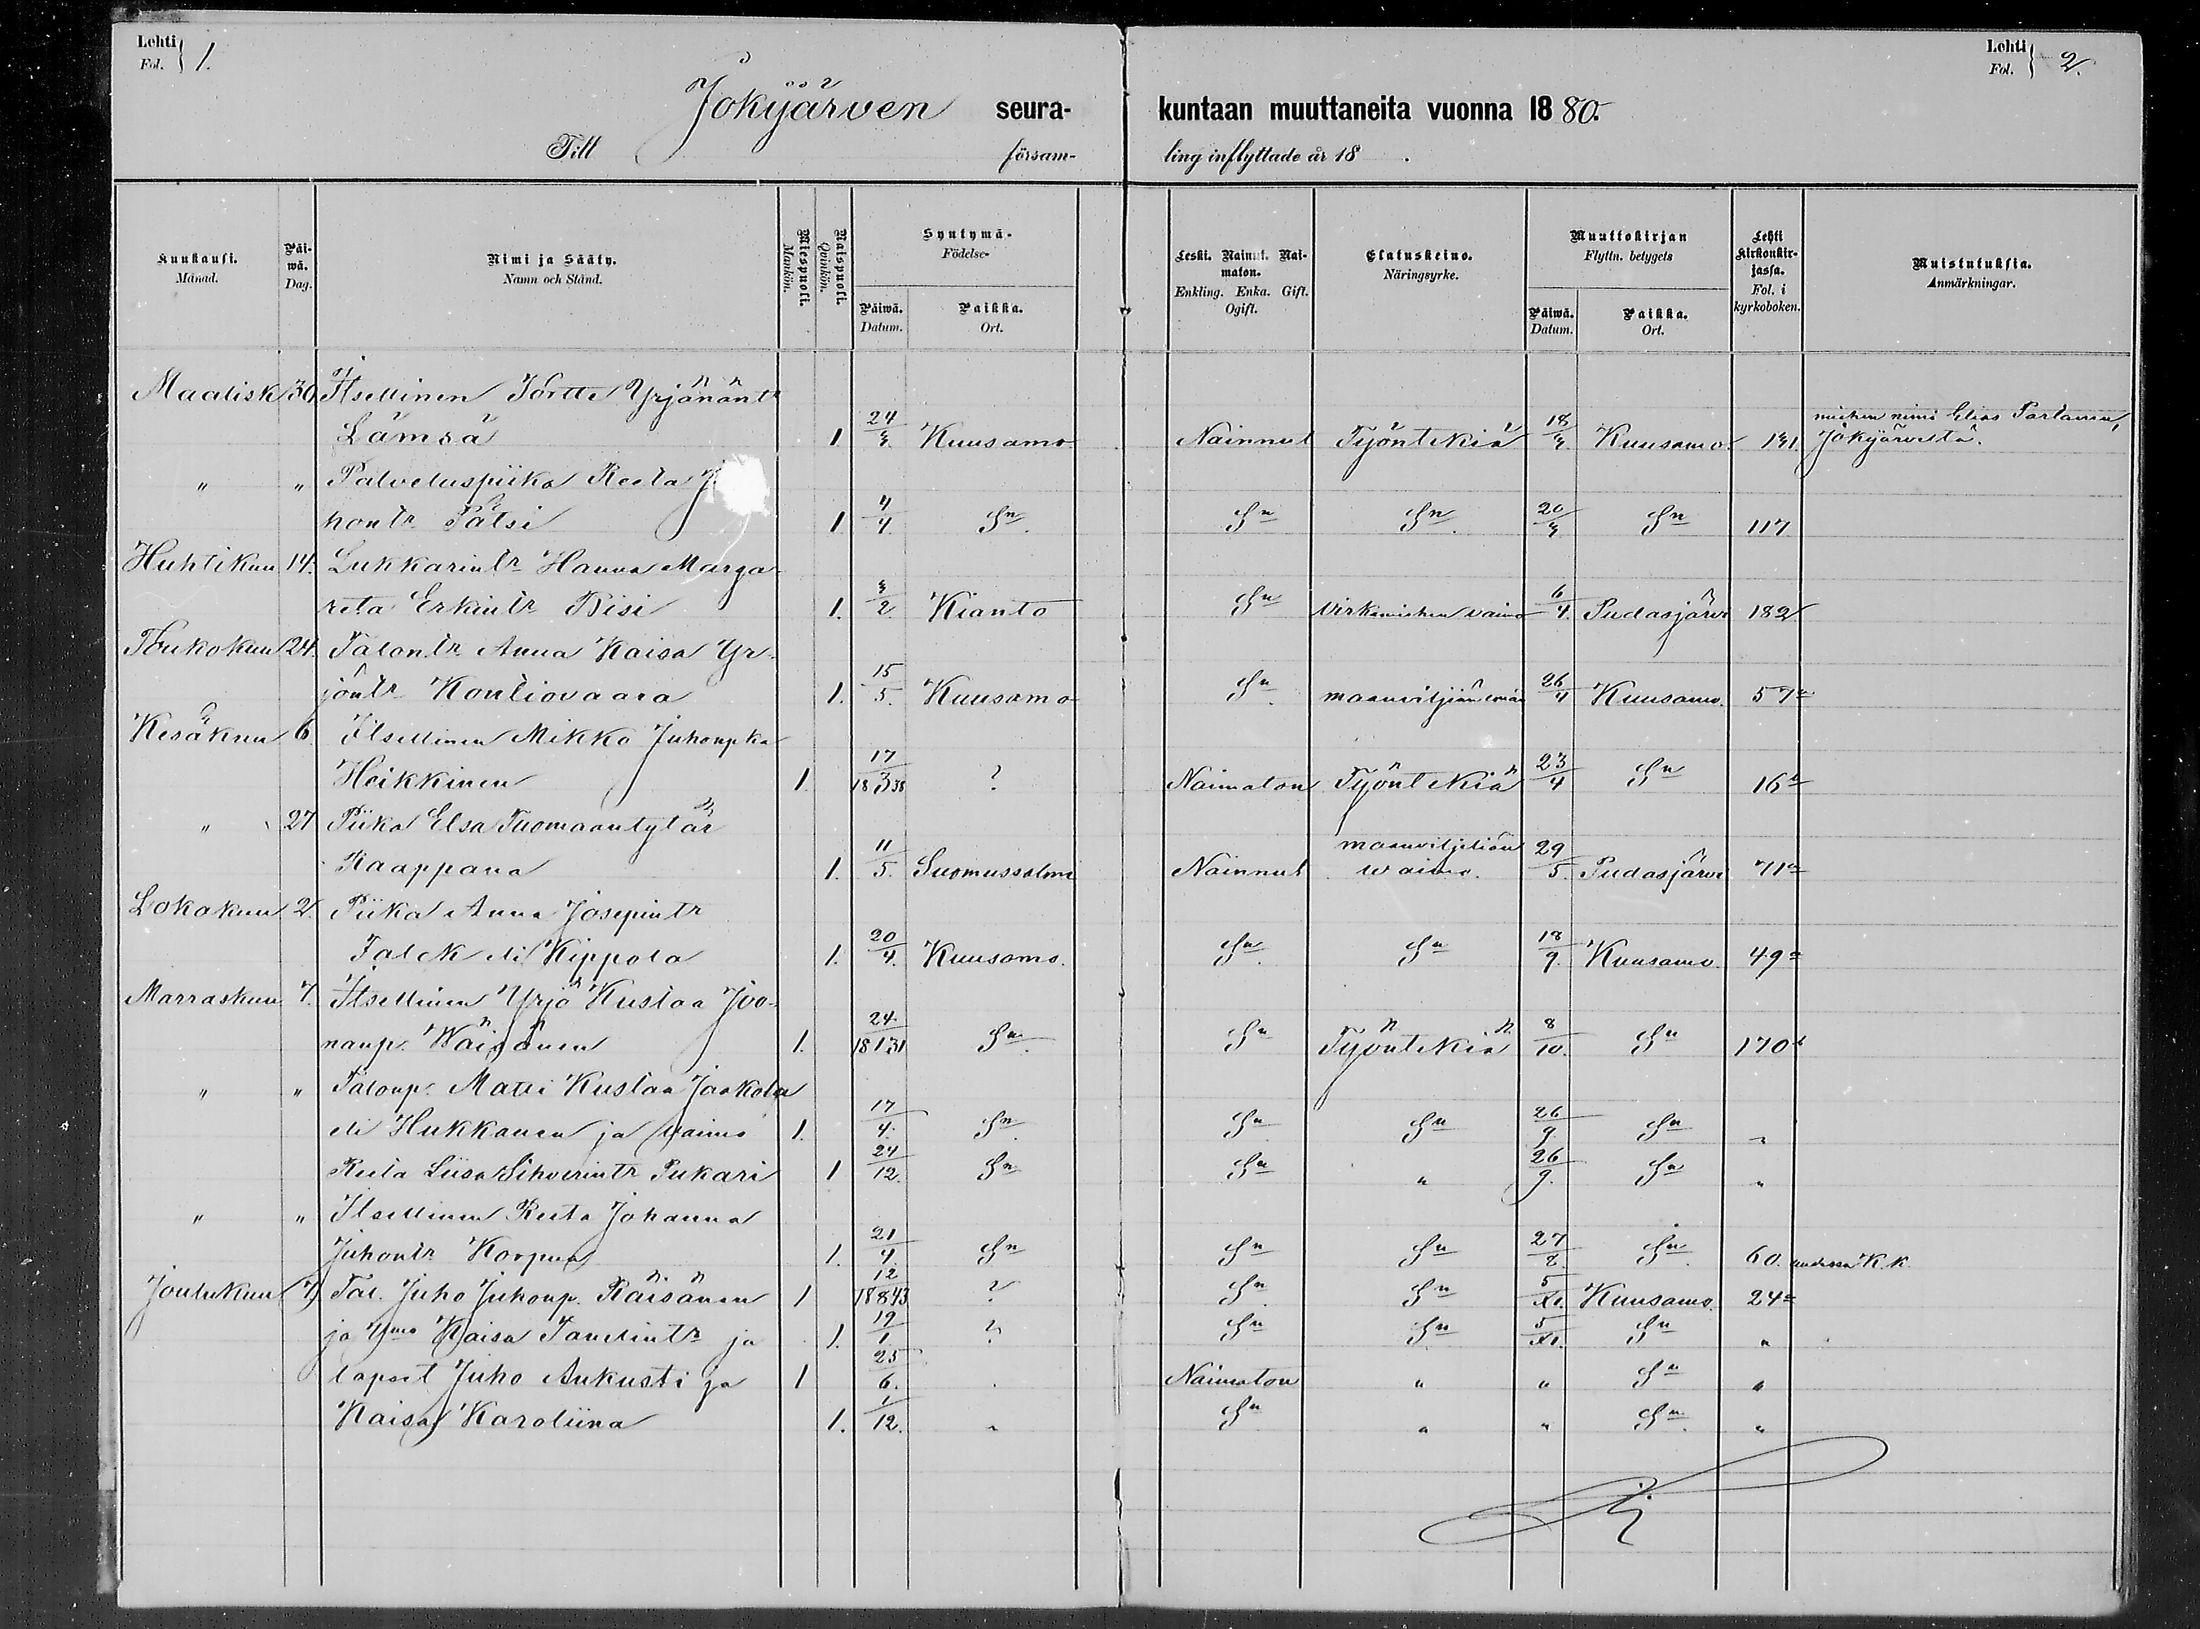 Lehti
Fol. } 1.
Jokijärven seura-
Till försam-
Lehti
Fol. } 2.
kuntaan muuttaneita vuonna 18 80.
ling inflyttade år 18 .
Kuukausi.
Månad.
Päi-
wä.
Dag.
Nimi ja Sääty.
Namn och Stånd.
Miespuoli.
Mankön.
Naispuoli.
Qvinkön.
Syntymä-
Födelse-
Päiwä.
Datum.
Paikka.
Ort.
Leski. Nainut. Nai-
maton.
Enkling. Enka. Gift.
Ogift.
Elatuskeino.
Näringsyrke.
Muuttokirjan
Flyttn. betygets
Päiwä.
Datum.
Paikka.
Ort.
Lehti
kirkonkir-
jassa.
Fol. i
kyrkoboken.
Muistutuksia.
Anmärkningar.
Maalisk 30 Itsellinen Yrjänäntr
Lämsä 1 24/3. Kuusamo Nainnut Työntekiä 18/3. Kuusamo. 131. miehen nimi Elias Partanen, Jokijärveltä.
" " Palveluspiika Reeta J
hontr Pätsi 1 4/4. Sn. Sn Sn. 20/3 Sn 117
Huhtikuu 14. Lukkarintr Hanna Marga-
reta Erkintr Bisi 1. 3/2. Kianto Sn Virkamiehen vaimo 6/4. Pudasjärvi 182
Toukokuu 24. Talontr Anna Kaisa Yr-
jöntr Kontiovaara 1. 15/5. Kuusamo Sn. 26/4 Kuusamo. 57a
Kesäkuu 6. Itsellinen Mikko Juhonpka
Heikkinen 1. 17/3 1838 ? Naimaton Työntekiä 23/4 Sn 16a
" 27 Piika Elsa Tuomaantytär
Kaappana 1. 11/5. Suomussalmi Nainnut maanviljeliän waimo. 29/5. Pudasjärvi 71a
Lokakuu 2. Piika Anna Josepintr
Falck eli Kippola 1. 20/4. Kuusamo. Sn. Sn 18/9. Kuusamo. 49a
Marraskuu 7. Itsellinen Yrjö Kustaa Joo-
nanp. Wäisänen 1. 24/1 1831 Sn. Sn Työntekiä 8/10. Sn 170
" " Talonp. Matti Kustaa Jaakola
eli Hukkanen ja vaimo 1. 17/4. Sn. Sn. Sn 26/9. Sn "
Reeta Liisa Sihverintr Pukari 1 24/12. Sn Sn " 26/9. Sn "
" " Itsellinen Reeta Johanna
Juhontr Korpua 1. 21/4. Sn Sn Sn 27/8. Sn. 60. uudessa K.k.
Joulukuu 7. Tal. Juho Juhonp. Räisänen 1 12/8 1843 ? Sn. Sn 5/XI. Kuusamo. 24a
ja Vmo Kaisa Tanelintr ja 1. 19/1. ? Sn Sn. 5/XI. Sn "
lapset Juho Aukusti ja 1 25/6. . Naimaton " " Sn "
Kaisa Karoliina 1. 1/12. " Sn " " Sn. "